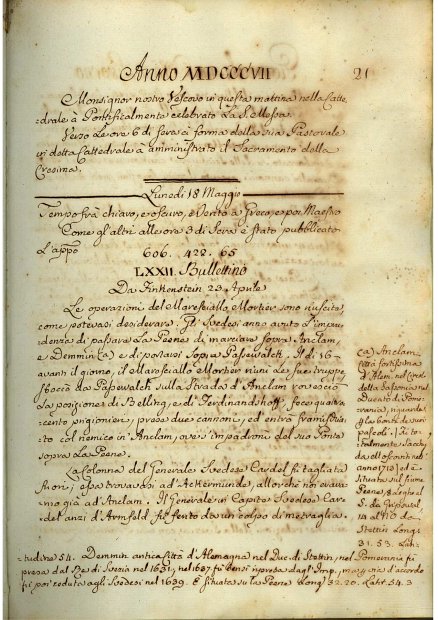 Anno MDCCCVII
21
Monsignor nostro Vescovo in questa mattina nella Catte,
=drale à Pontificalmente celebrato La S. Messa.
Verso Le ore 6 di sera à forma della sua Pastorale
in detta Cattedrale à amministrato il Sacramento della
Cresima.
Lunedi 18 Maggio
Tempo frà chiaro, e oscuro, e Vento a Greco, e poi Maestro
Come gl'altri alle ore 3 di Sera è stato pubblicato
L'appo
606. 422. 65
LXXII. Bullettino
Da Finkenstein 23 Aprile
Le operazioni del Maresciallo Mortier sono riuscite,
come potevasi desiderare. Gli Svedesi anno avuto L'impru,
denza di passare La Peene di marciare sopra Anclam,
e Demmin (a) e di portarsi sopra Pasewalch. Il dì 16
avanti il giorno, il Maresciallo Mortier riunì Le sue truppe,
sboccò da Pasewalch sulla Strada d'Anclam rovesciò
La posizione di Belling, e di Ferdinandshoff, fece quattro,
cento prigionieri, prese due cannoni, ed entrò framischia,
to col nemico in Anclam, ove s'impadronì del suo Ponte
sopra La Peene.
La colonna del Generale Svedese Cardel fù tagliata
fuori, essa trovavasi ad Ackermunde, allorchè noi erava,
mo già ad Anclam. Il Generale in Capite Svedese
d'Armfeld fù ferito da un colpo di metraglia.
(a) Anclam
città fortissima
d'Alem: nel circ:
della Sassonia nel
Ducato di Pome,
rania, riguardev:
per la bontà de suoi
pascoli. Fù to,
talmente saccheg,
nel
anno 1713 ed è
situata sul fiume
Peene, 8 Leghe al
S. da
18 al NO da
Stettin Long:
31. 53. Lati-
=tudine 54. Demmin antica Città d'Alemagna nel Duc: di Stettin, nel Pomerania fù
presa dal Re di Svezia nel 1631, nel 1637 fù densi ripresa dagl'Imp., ma d'accordo
fù poi ceduta agli Svedesi nel 1639. È situata su la Peene Long: 32. 20. Latit. 54. 3